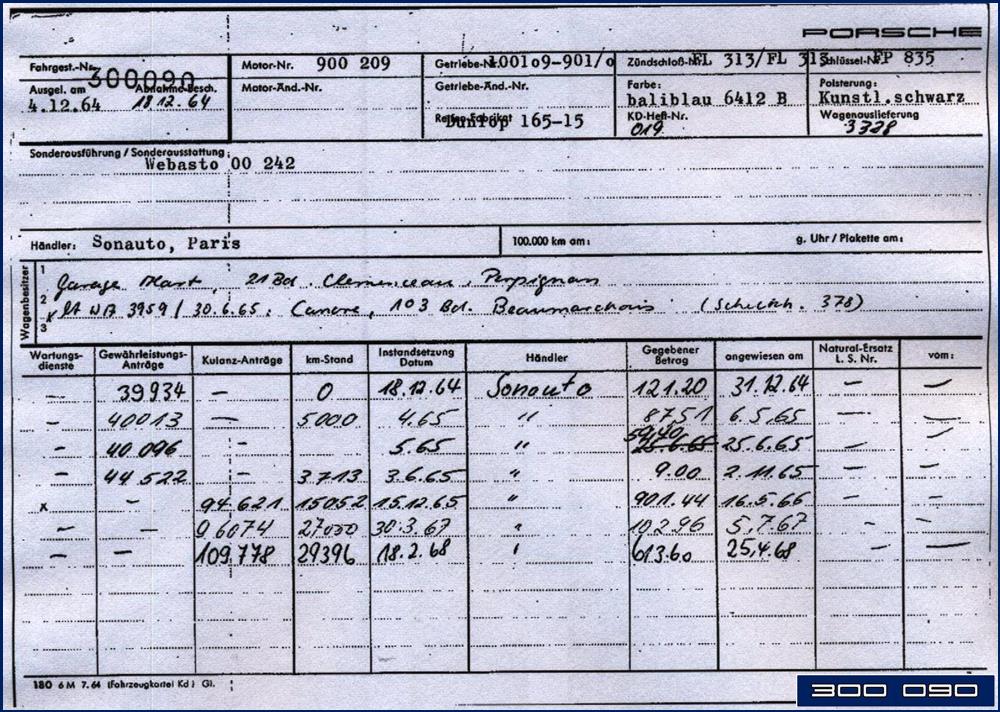 PORSCHE
Fahrgest.-Nr. 300090 Motor-Nr. 900 209 Getriebe-Nr. 100109-901/0 Zündschloß-Nr. FL 313/FL 313 Schlüssel-Nr. FP 835
Ausgel. am 4.12.64 Abnahme-Besch. 18.12.64 Motor-Änd.-Nr. Getriebe-Änd.-Nr. Farbe: baliblau 6412 B Polsterung: Kunstl.schwarz
Reifen-Fabrikat Dunlop 165-15 KD-Heft-Nr. 019 Wagenauslieferung 3328
Sonderausführung / Sonderausstattung:
Webasto 00 242
Händler: Sonauto, Paris 100.000 km am: g. Uhr / Plakette am:
Wagenbesitzer
1 Garage 21 Bd. Clemenceau, Perpignan
2 lt WA 3959 / 30.6.65: 103 Bd. Beaumarchais 378)
3
Wartungsdienste Gewährleistungs-Anträge Kulanz-Anträge km-Stand Instandsetzung Datum Händler Gegebener Betrag angewiesen am Natural-Ersatz L. S. Nr. vom:
— 39934 — 0 18.12.64 Sonauto 121.20 31.12.64 — —
— 40013 — 5000 4.65 " 87.51 6.5.65 — —
— 40096 - 5.65 " 59,40 25.6.65 25.6.65 — —
— 44522 - 3713 3.6.65 " 9.00 2.11.65 — —
x - 94621 15052 15.12.65 " 901.44 16.5.66 — —
— — 96074 27000 30.3.67 " 102.96 5.7.67 - -
— — 109.778 29396 18.2.68 " 613.60 25.4.68 — —
180 6 M 7. 64 (Fahrzeugkartei Kd ) Gl.
300 090